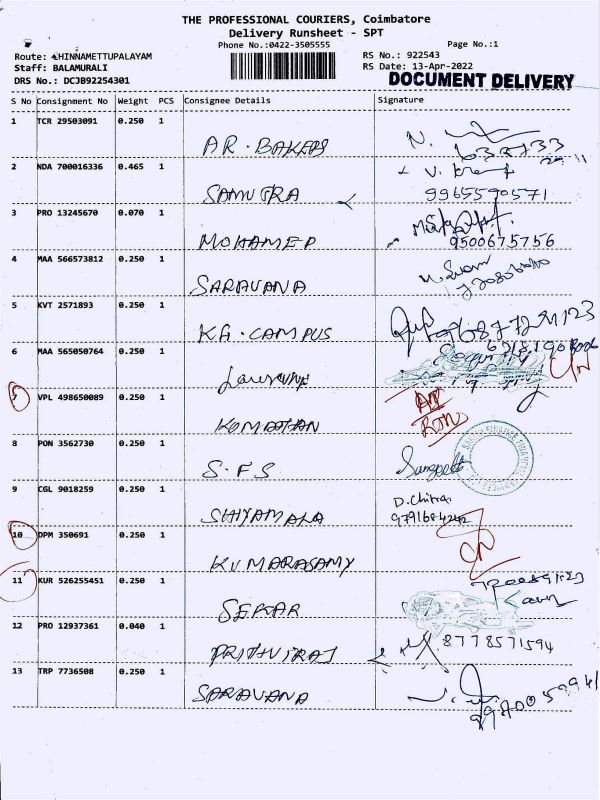 THE PROFESSIONAL COURIERS, Coimbatore
Delivery Runsheet - SPT
Phone No.:0422-3505555
Page No.:1
Route: CHINNAMETTUPALAYAM
RS No.: 922543
Staff: BALAMURALI
RS Date: 13-Apr-2022
DRS No.: DCJB92254301
DOCUMENT DELIVERY
S No Consignment No Weight PCS Consignee Details Signature
1 TCR 29503091 0.250 1
AR. BAKERS
2 NDA 700016336 0.465 1
SAMUTRA 9965590571
3 PRO 13245670 0.070 1
MOHAMED 9500675756
4 MAA 566573812 0.250 1
SARAVANA
5 KVT 2571893 0.250 1
KG. CAMPUS
6 MAA 565050764 0.250 1
7 VPL 498650089 0.250 1
KOMATHAN
8 PON 3562730 0.250 1
S.F.S Sangeeth
9 CGL 9018259 0.250 1
D. Chitra
SHIYAMALA 9791684242
10 DPM 350691 0.250 1
KUMARASAMY
11 KUR 526255451 0.250 1
SEKAR
12 PRO 12937361 0.040 1
PRITHVIRAJ 8778571594
13 TRP 7736508 0.250 1
SARAVANA